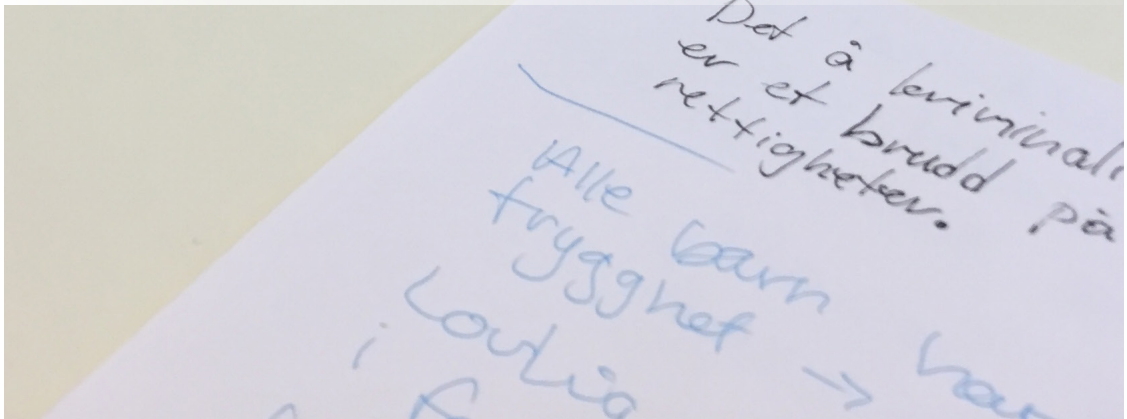 Det å kriminali
er et brudd på
rettigheter.
Alle barn ha
trygghet →
Lovlig
i